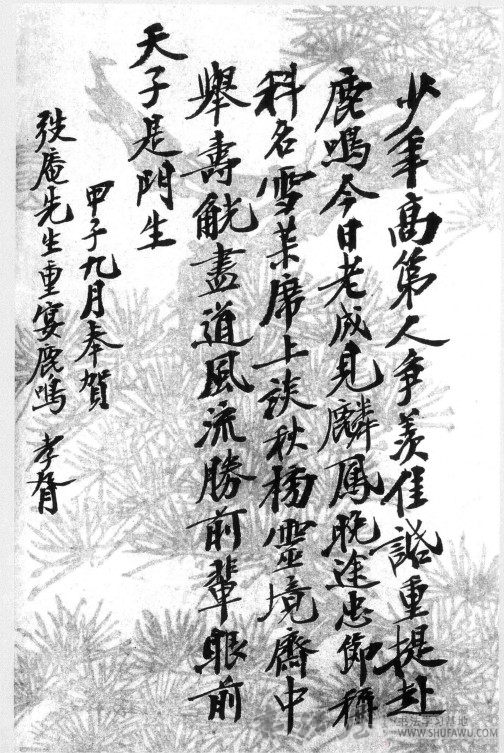 少年高第人争羨佳話重提赴
鹿鳴今日老成見麟鳳晚途忠節稱
科名雪席上談秋靈境齋中
舉壽觥盡道風流勝前輩眼前
天子是門生
甲子九月奉賀
弢庵先生重宴鹿鳴 孝胥
书法学习基地
WWW.SHUFAWU.COM